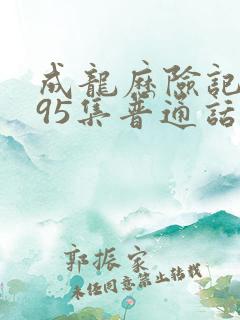 成龍歷險記
95集普通話
郭振家
未任同意禁止转载